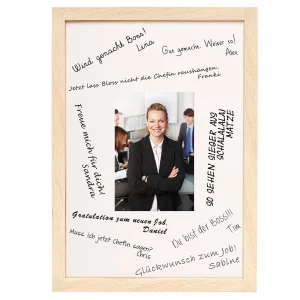 Wird gemacht Boss!
Lina
Gut gemacht. Weiter so!
Alex
Jetzt lass Bloss nicht die Chefin raushängen.
Franki
Freue mich für dich!
Sandra
SO SEHEN SIEGER AUS
SCHALALALA!
MATZE
Gratulation zum neuen Job.
Daniel
Du bist der Boss!!!
Tim
Muss ich jetzt Chefin sagen?
Chris
Glückwunsch zum Job!
Sabine